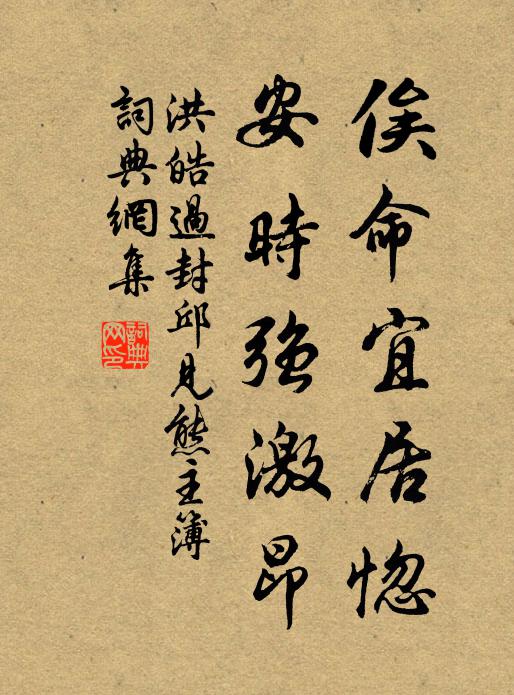 俟命宜居惚
安時強激昂
洪皓過封邱見熊主簿
詞典網集
詞典网印